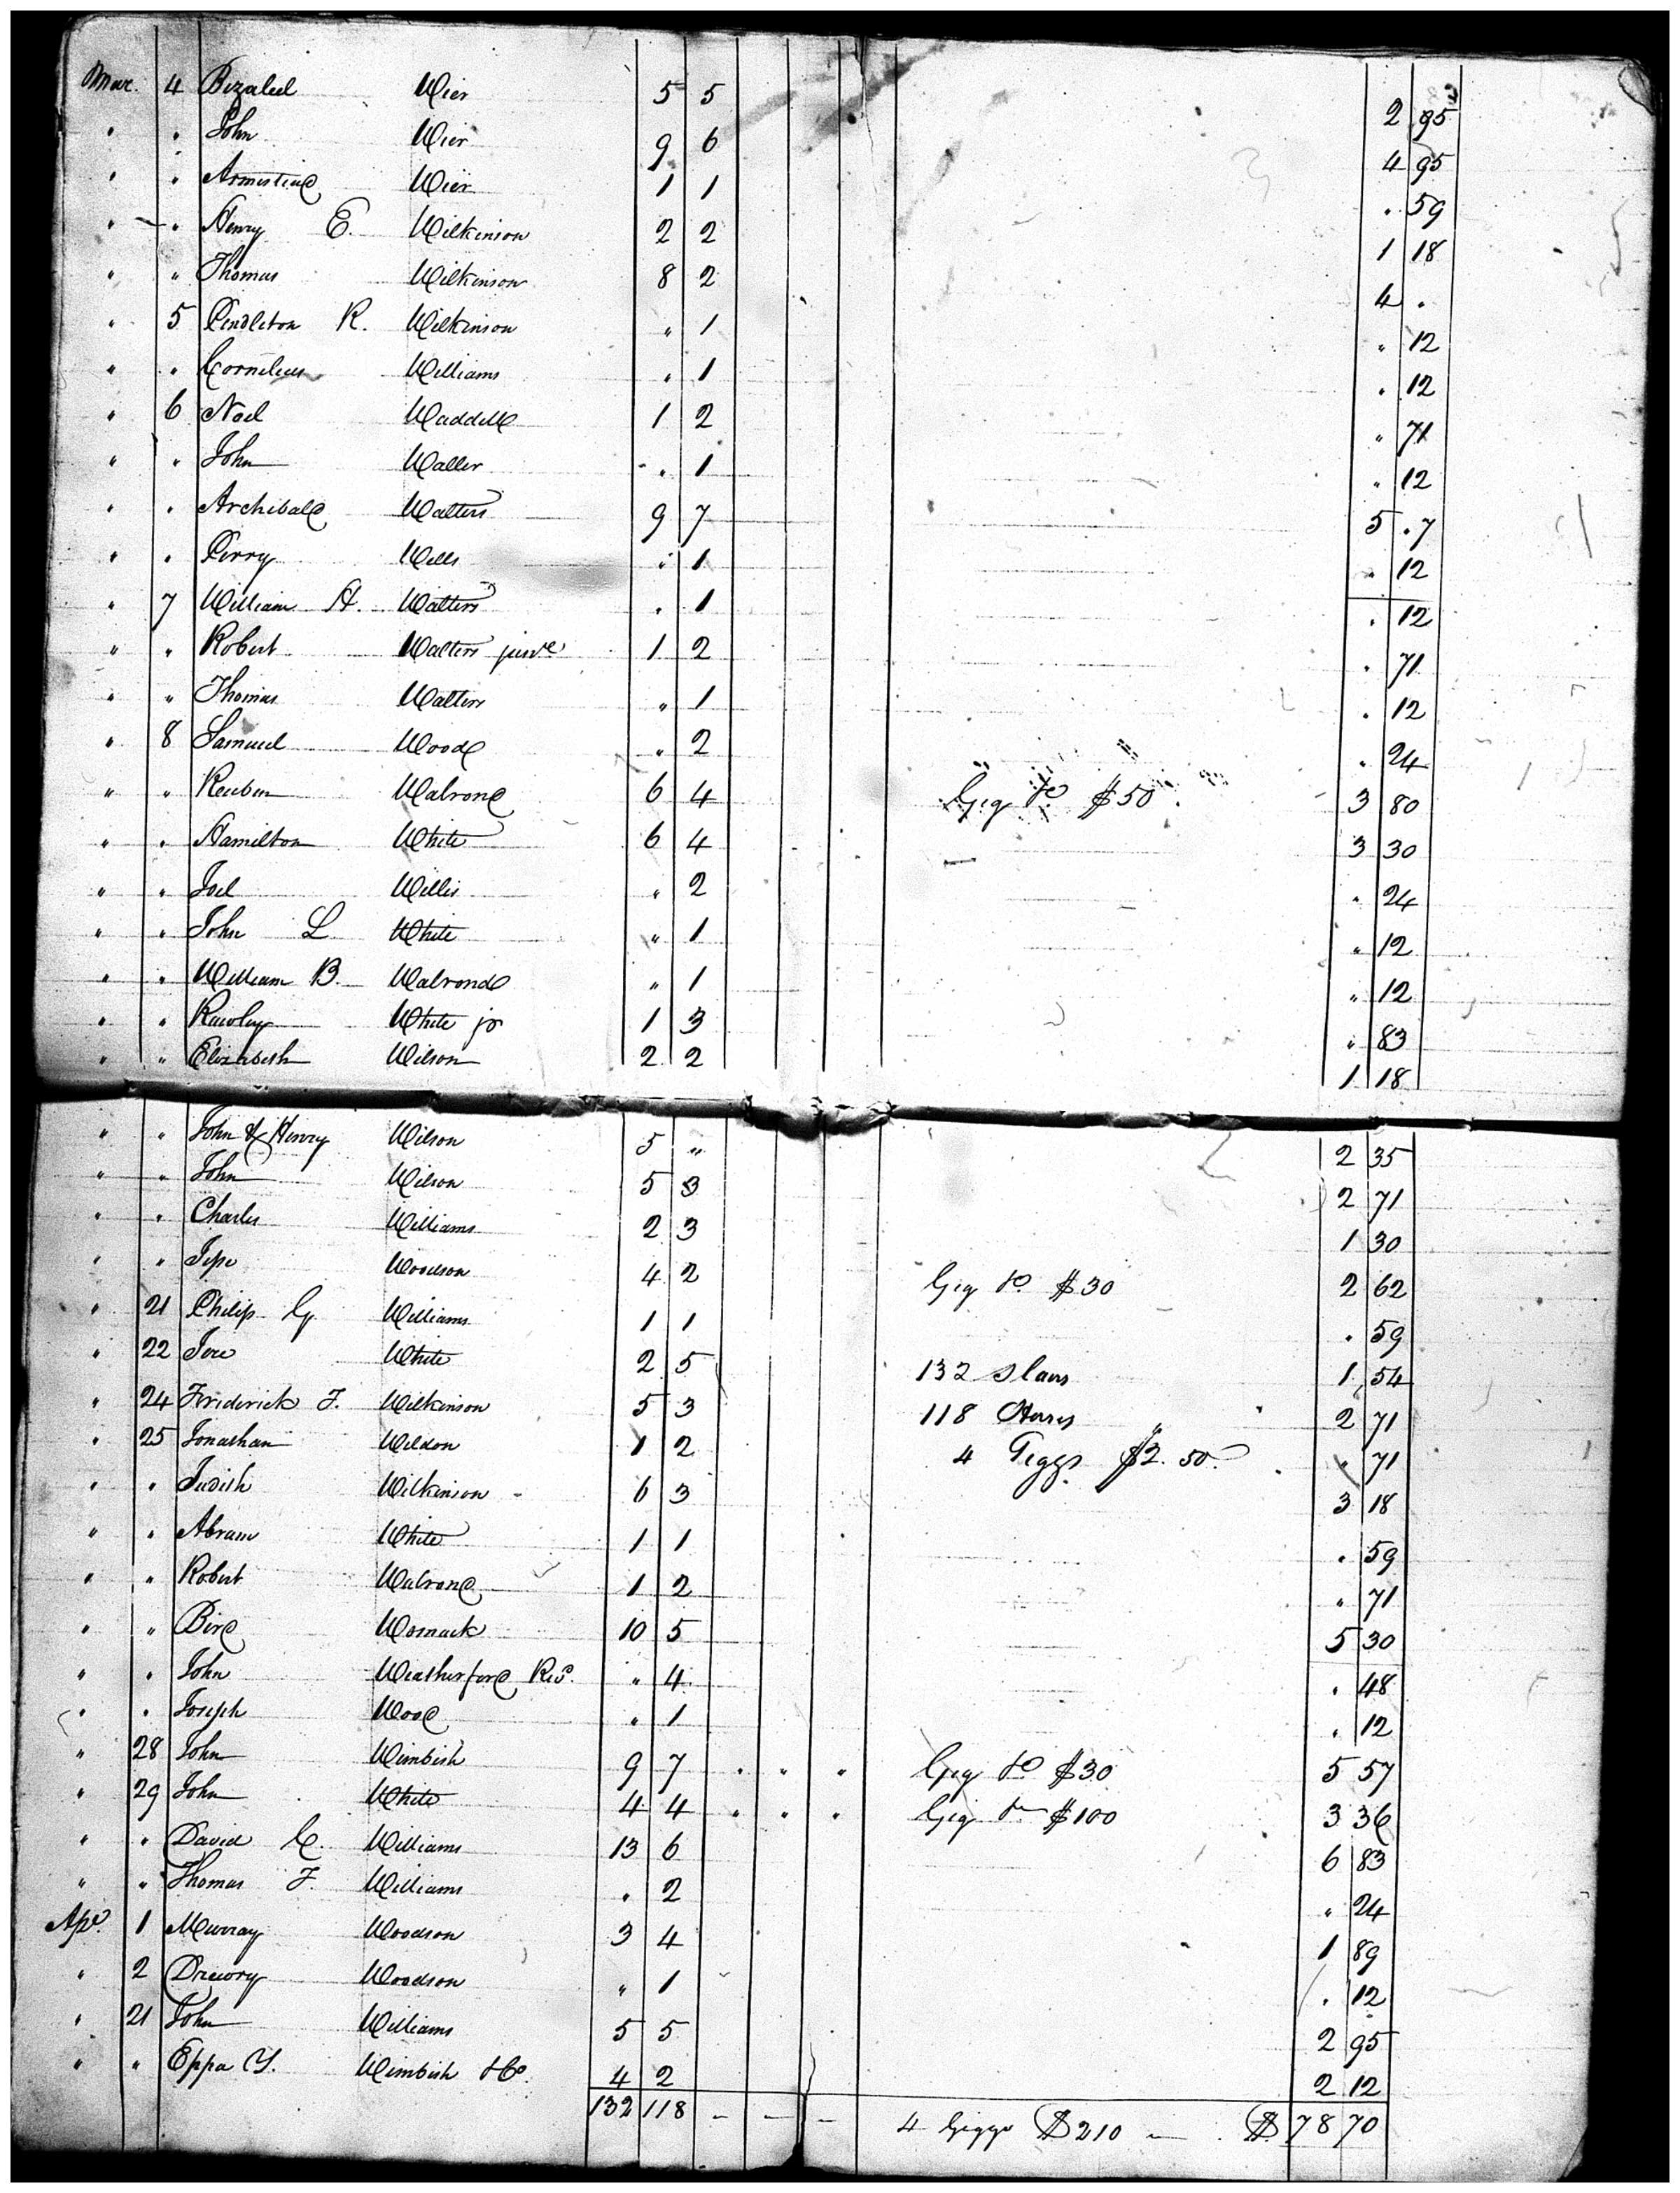 Mar. 4 Bezaleel Wier 5 5 2 95
" " John Wier 9 6 4 95
" " Armistead Wier 1 1 " 59
" " Henry E. Wilkinson 2 2 1 18
" " Thomas Wilkinson 8 2 4 "
" 5 Pendleton R. Wilkinson " 1 " 12
" " Cornelius Williams " 1 " 12
" 6 Noel Waddell 1 2 " 71
" " John Waller " 1 " 12
" " Archibald Walters 9 7 5 . 7
" " Perry Wells " 1 " 12
" 7 William H. Watters " 1 " 12
" " Robert Walters 1 2 " 71
" " Thomas Watters " 1 " 12
" 8 Samuel Wood " 2 " 24
" " Reuben Walrond 6 4 Gig do $50 3 80
" " Hamilton White 6 4 3 30
" " Joel Willis " 2 " 24
" " John L White " 1 " 12
" " William B. Walrond " 1 " 12
" " Rawley White jr 1 3 " 83
" " Elizabeth Wilson 2 2 1 18
" " John & Henry Wilson 5 " 2 35
" " John Wilson 5 3 2 71
" " Charles Williams 2 3 1 30
" " Jesse Woodson 4 2 Gig do $30 2 62
" 21 Philip G Williams 1 1 " 59
" 22 Jere White 2 5 132 slaves 1 54
" 24 Frederick F. Wilkinson 5 3 118 Horses 2 71
" 25 Jonathan Weldon 1 2 4 Giggs $2.50 " 71
" " Judith Wilkinson 6 3 3 18
" " Abram White 1 1 " 59
" " Robert Walrond 1 2 " 71
" " Bird Womack 10 5 5 30
" " John Weatherford Rev. " 4 " 48
" " Joseph Wood " 1 " 12
" 28 John Wimbish 9 7 " " " Gig do $30 5 57
" 29 John White 4 4 " " " Gig do $100 3 36
" " David C. Williams 13 6 6 83
" " Thomas F. Williams " 2 " 24
Apl. 1 Murray Woodson 3 4 1 89
" 2 Drewry Woodson " 1 " 12
" 21 John Williams 5 5 2 95
" " Eppa Y. Wimbish &Co. 4 2 2 12
132 118 - - - 4 Giggs $210 — $78 70